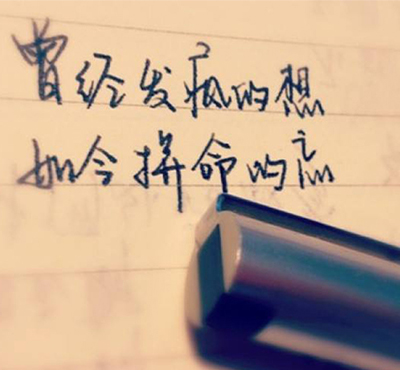 曾经发疯的想
如今拼命的忘